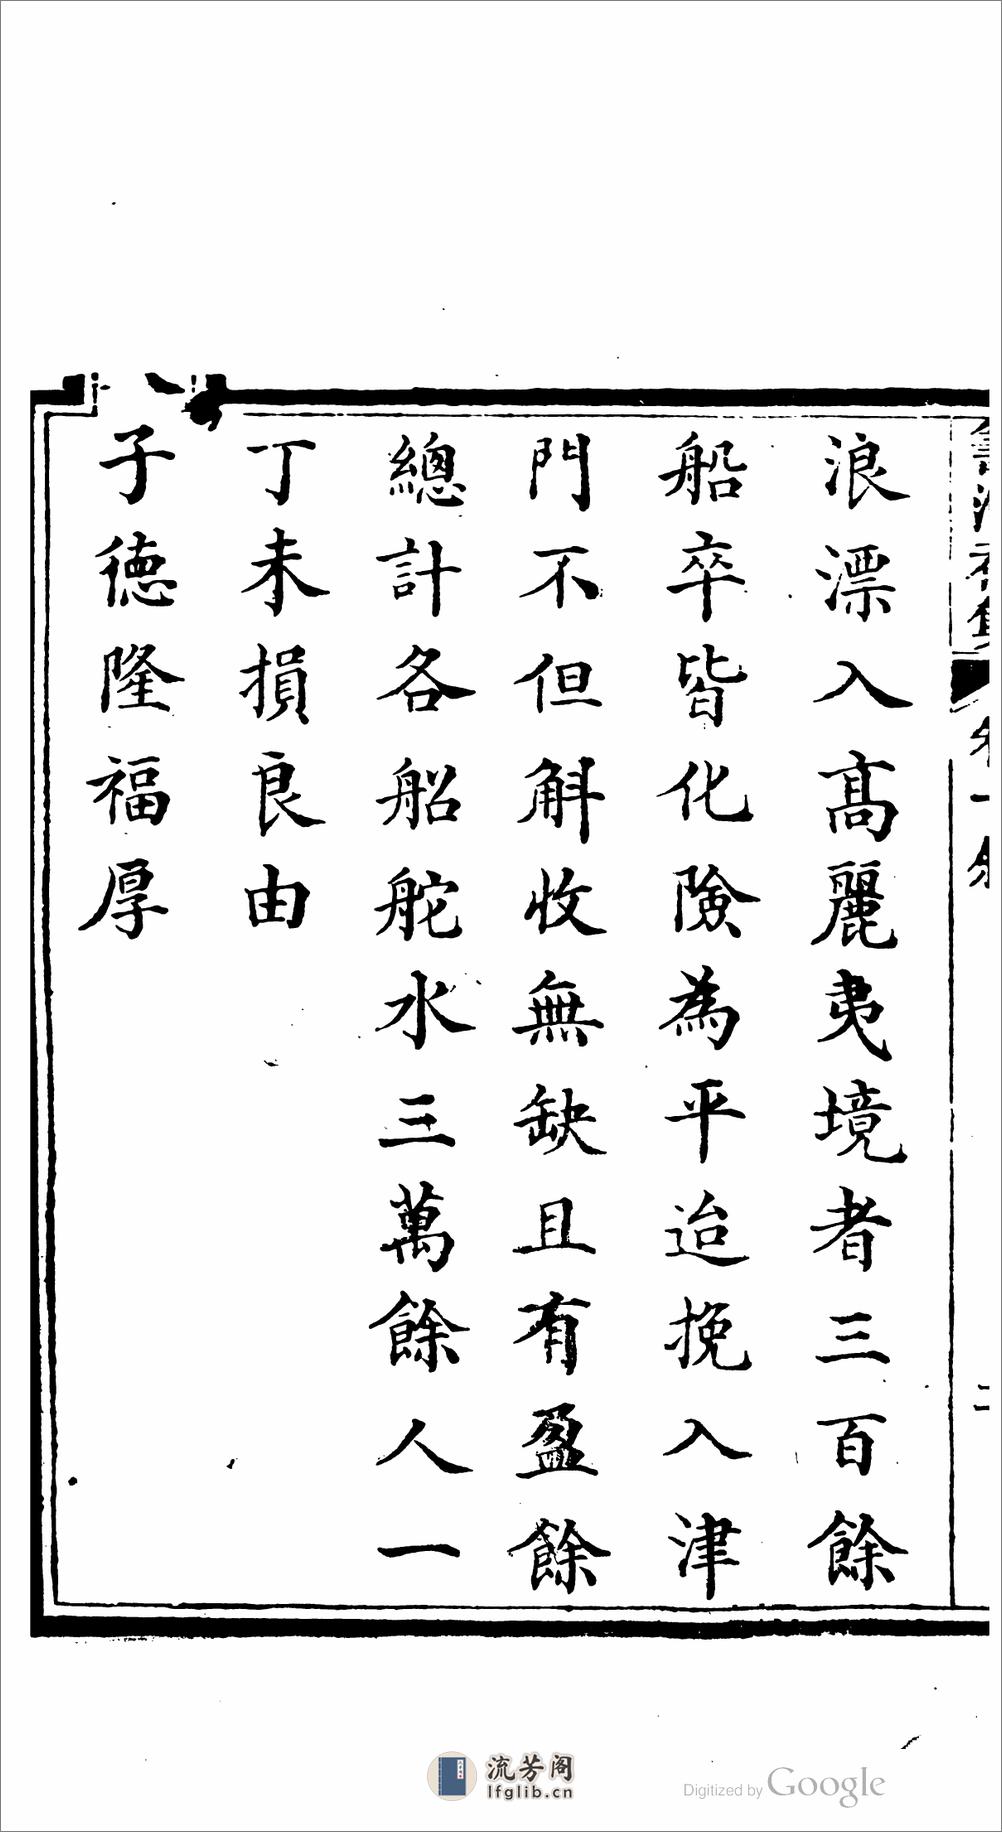 浪漂入高麗夷境者三百餘
船卒皆化險為平迨挽入津
門不但斛收無缺且有盈餘
總計各船舵水三萬餘人一
丁未損良由
子德隆福厚
流芳阁
lfglib.cn
Digitized by Google